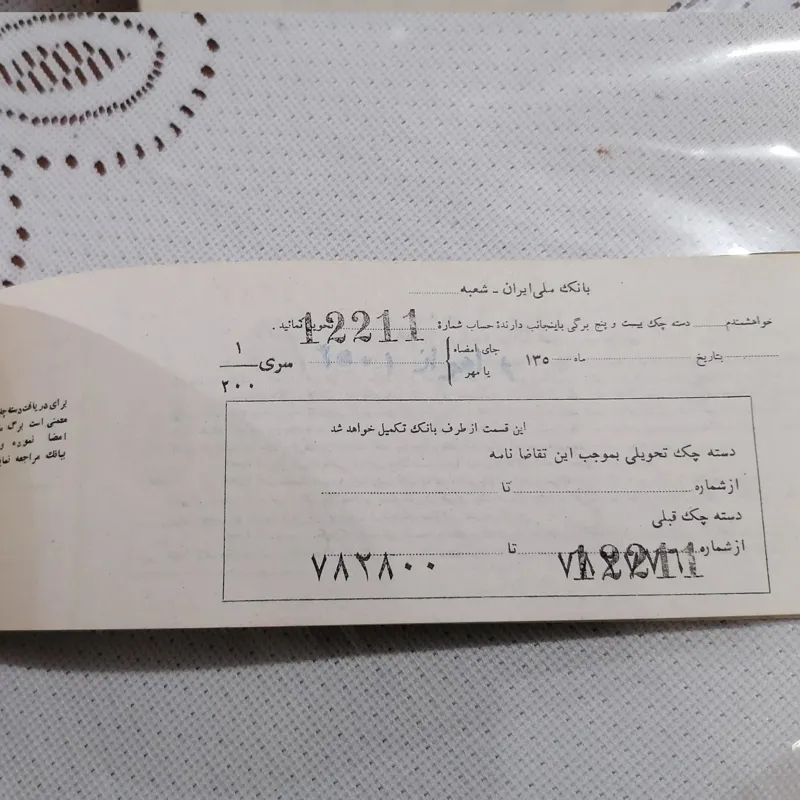 بانک ملی ایران - شعبه
خواهشمندم ........ دسته چک بیست و پنج برگی باینجانب دارنده حساب شماره 12211 تحویل نمائید .
بتاریخ ........ ماه ........ ۱۳۵
جای امضاء
یا مهر
سری ۱/۲۰۰
این قسمت از طرف بانک تکمیل خواهد شد
دسته چک تحویلی بموجب این تقاضا نامه
از شماره ........ تا ........
دسته چک قبلی
از شماره 12211 تا ۷۸۲۸۰۰
برای دریافت دسته
است برگ
امضا نموده و
ببانک مراجعه